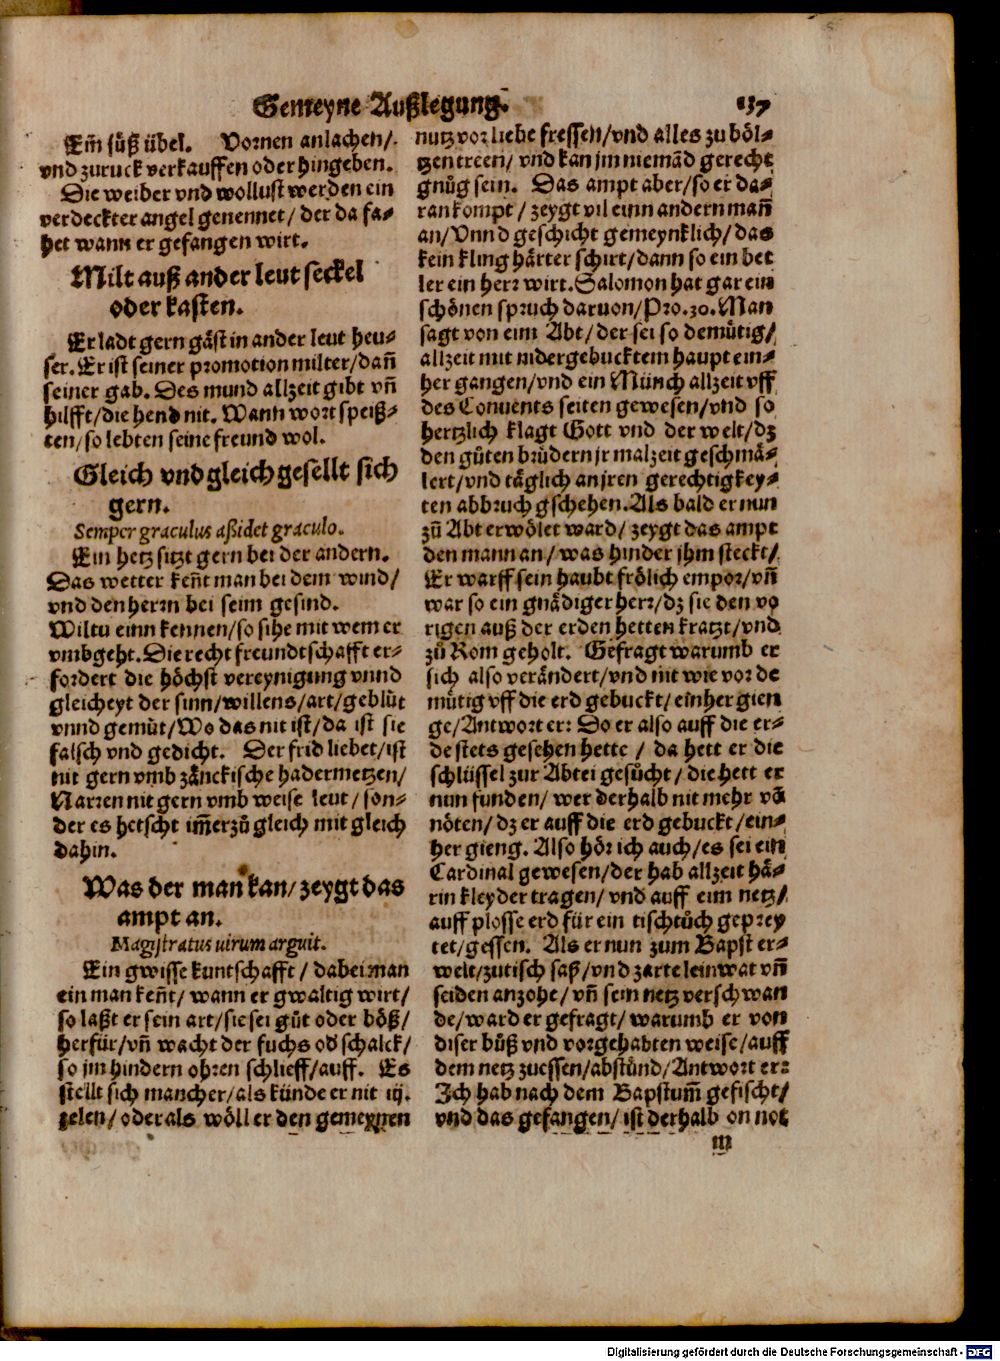 Gemeyne Außlegung. 137
Ein̄ süß übel. Vornen anlachen/
vnd zuruck verkauffen oder hingeben.
Die weiber vnd wollust werden ein
verdeckter angel genennet/ der da fa-
het wann er gefangen wirt.
Milt auß ander leut seckel
oder kasten.
Er ladt gern gäst in ander leut heu-
ser. Er ist seiner promotion milter/dañ
seiner gab. Des mund allzeit gibt vñ
hilfft/die hend nit. Wann wort speiß-
ten/so lebten seine freund wol.
Gleich vnd gleich gesellt sich
gern.
Semper graculus aßidet graculo.
Ein hetz sitzt gern bei der andern.
Das wetter keñt man bei dem wind/
vnd den herrn bei seim gesind.
Wiltu einn kennen/so sihe mit wem er
vmbgeht. Die recht freundtschafft er-
fordert die höchst vereynigung vnnd
gleicheyt der sinn/willens/art/geblüt
vnnd gemüt/Wo das nit ist/da ist sie
falsch vnd gedicht. Der frid liebet/ist
nit gern vmb zänckische hadermetzen/
Narren nit gern vmb weise leut/ son-
der es hetscht im̄erzů gleich mit gleich
dahin.
Was der man kan/ zeygt das
ampt an.
Magistratus uirum arguit.
Ein gwisse kuntschafft/ dabei man
ein man keñt/ wann er gwaltig wirt/
so laßt er sein art/sie sei gůt oder böß/
herfür/vñ wacht der fuchs od schalck/
so jm hindern ohren schlieff/auff. Es
stellt sich mancher/als künde er nit iij.
zelen/ oder als wöll er den gemeynen
nutz vor liebe fressen/vnd alles zu böl-
tzen treen/ vnd kan jm niemād gerecht
gnůg sein. Das ampt aber/so er da-
ran kompt/ zeygt vil einn andern mañ
an/Vnnd geschicht gemeynklich/das
kein kling härter schirt/dann so ein bet
ler ein herr wirt. Salomon hat gar ein
schönen spruch daruon/Pro.30. Man
sagt von eim Abt/der sei so demütig/
allzeit mit nidergebucktem haupt ein-
her gangen/vnd ein Münch allzeit vff
des Conuents seiten gewesen/vnd so
hertzlich klagt Gott vnd der welt/dz
den gůten brüdern jr malzeit geschmä-
lert/vnd täglich an jren gerechtigkey-
ten abbruch gschehen. Als bald er nun
zů Abt erwölet ward/ zeygt das ampt
den mann an/ was hinder jhm steckt/
Er warff sein haubt frölich empor/vñ
war so ein gnädiger herr/dz sie den vo
rigen auß der erden hetten kratzt/vnd
zů Rom geholt. Gefragt warumb er
sich also verändert/vnd nit wie vor de
mütig vff die erd gebuckt/ einher gien
ge/Antwort er: Do er also auff die er-
de stets gesehen hette/ da hett er die
schlüssel zur Abtei gesůcht/ die hett er
nun funden/ wer derhalb nit mehr vō
nöten/dz er auff die erd gebuckt/ein-
her gieng. Also hör ich auch/es sei ein
Cardinal gewesen/der hab allzeit hä-
rin kleyder tragen/ vnd auff eim netz/
auff plosse erd für ein tischtůch geprey
tet/gessen. Als er nun zum Bapst er-
welt/zutisch saß/vnd zarte leinwat vñ
seiden anzohe/vñ sein netz verschwan
de/ward er gefragt/ warumb er von
diser bůß vnd vorgehabten weise/auff
dem netz zuessen/abstünd/Antwort er:
Ich hab nach dem Bapstum̄ gefischt/
vnd das gefangen/ ist derhalb on not
m
Digitalisierung gefördert durch die Deutsche Forschungsgemeinschaft - DFG